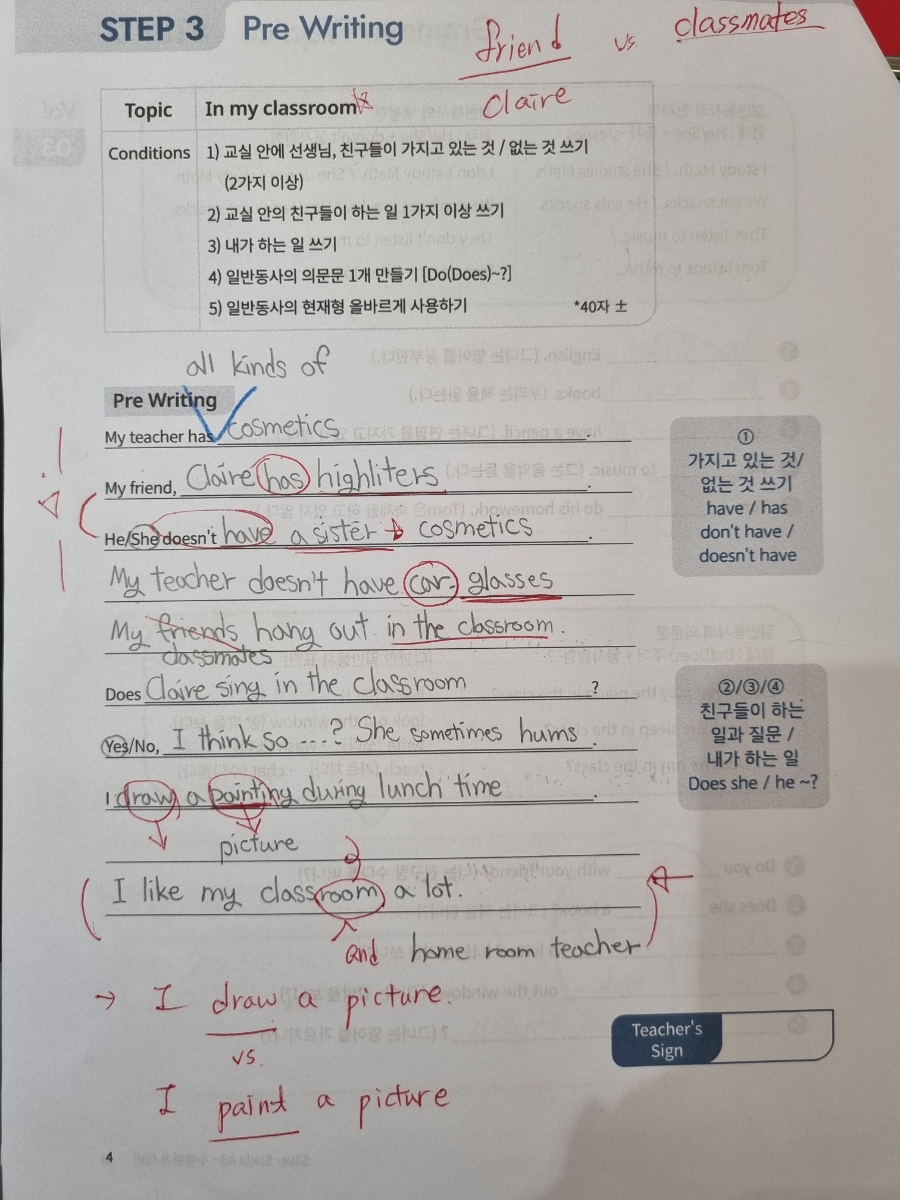 STEP 3 Pre Writing
friend vs classmates
Claire
Topic In my classroom
Conditions 1) 교실 안에 선생님, 친구들이 가지고 있는 것 / 없는 것 쓰기
(2가지 이상)
2) 교실 안의 친구들이 하는 일 1가지 이상 쓰기
3) 내가 하는 일 쓰기
4) 일반동사의 의문문 1개 만들기 [Do(Does)~?]
5) 일반동사의 현재형 올바르게 사용하기 *40자 ±
all kinds of
Pre Writing
My teacher has cosmetics.
My friend, Claire has highliters
He/She doesn't have a sister cosmetics.
My teacher doesn't have car. glasses
My friends hang out in the classroom.
classmates
Does Claire sing in the classroom ?
Yes/No, I think so ...? She sometimes hums.
I draw a painting during lunch time.
picture
I like my classroom a lot.
and home room teacher
→ I draw a picture.
vs.
I paint a picture
①
가지고 있는 것/
없는 것 쓰기
have / has
don't have /
doesn't have
②/③/④
친구들이 하는
일과 질문 /
내가 하는 일
Does she / he ~?
Teacher's
Sign
4